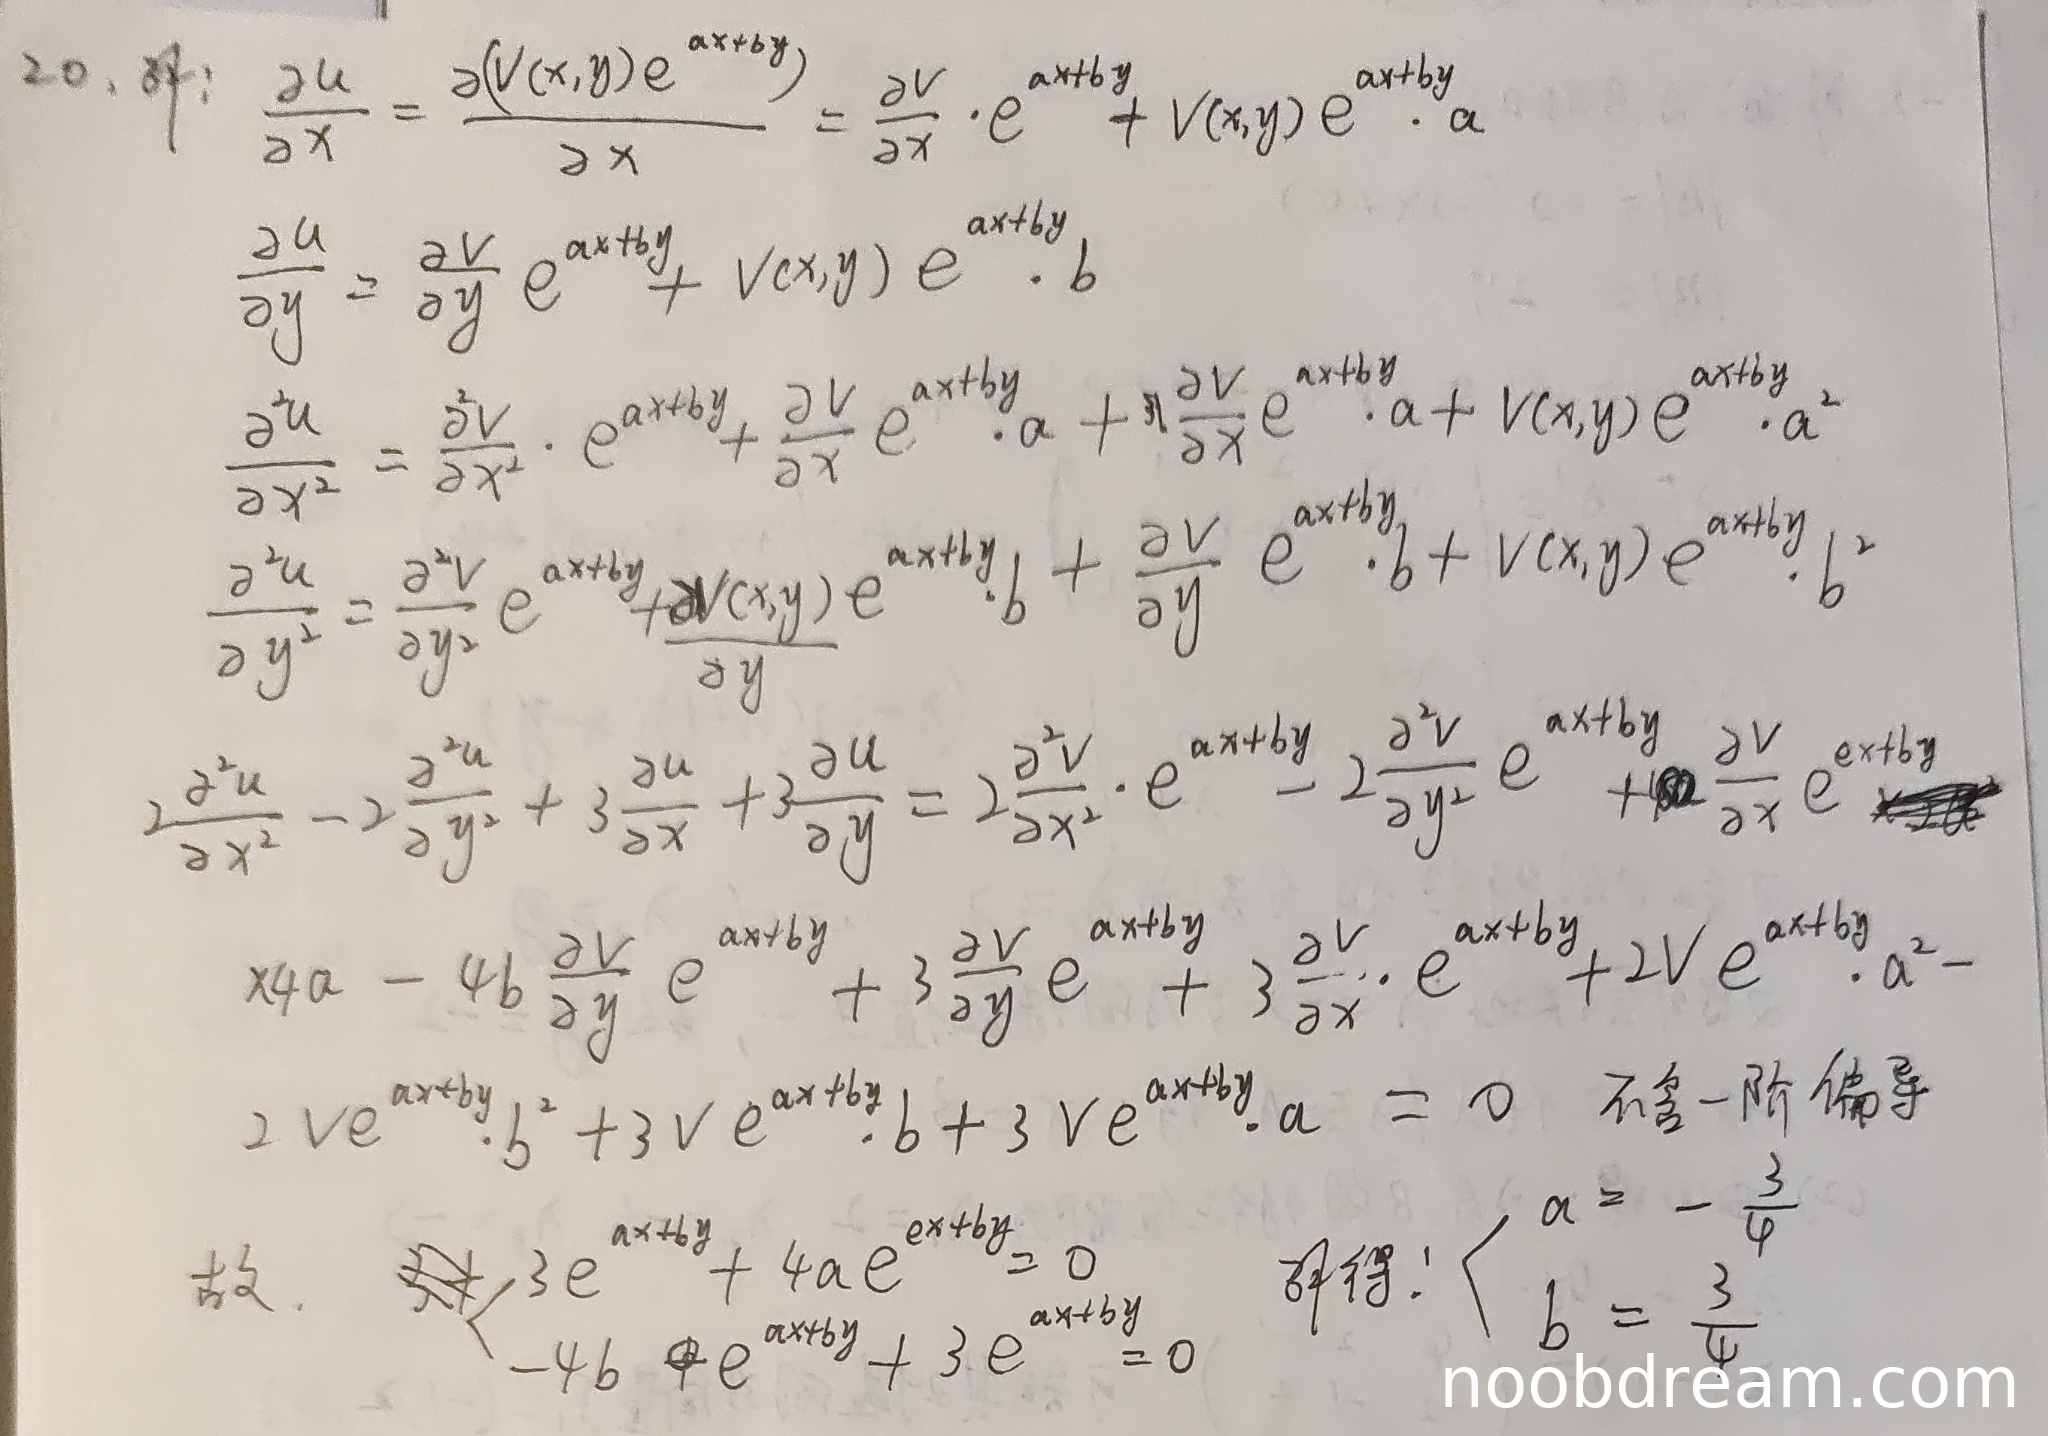 20. 解: ∂u/∂x = ∂(V(x,y)e^{ax+by})/∂x = ∂V/∂x · e^{ax+by} + V(x,y)e^{ax+by} · a
∂u/∂y = ∂V/∂y e^{ax+by} + V(x,y) e^{ax+by} · b
∂²u/∂x² = ∂²V/∂x² · e^{ax+by} + ∂V/∂x e^{ax+by} · a + ∂V/∂x e^{ax+by} · a + V(x,y) e^{ax+by} · a²
∂²u/∂y² = ∂²V/∂y² e^{ax+by} + ∂V(x,y)/∂y e^{ax+by} · b + ∂V/∂y e^{ax+by} · b + V(x,y) e^{ax+by} · b²
2 ∂²u/∂x² − 2 ∂²u/∂y² + 3 ∂u/∂x + 3 ∂u/∂y = 2 ∂²V/∂x² · e^{ax+by} − 2 ∂²V/∂y² e^{ax+by} + ∂V/∂x e^{ex+by}
×4a − 4b ∂V/∂y e^{ax+by} + 3 ∂V/∂y e^{ax+by} + 3 ∂V/∂x · e^{ax+by} + 2V e^{ax+by} · a² −
2Ve^{ax+by} · b² + 3Ve^{ax+by} · b + 3Ve^{ax+by} · a = 0 不含一阶偏导
故. { 3e^{ax+by} + 4ae^{ex+by} = 0 解得: { a = − 3/4
−4b e^{ax+by} + 3e^{ax+by} = 0 b = 3/4
noobdream.com